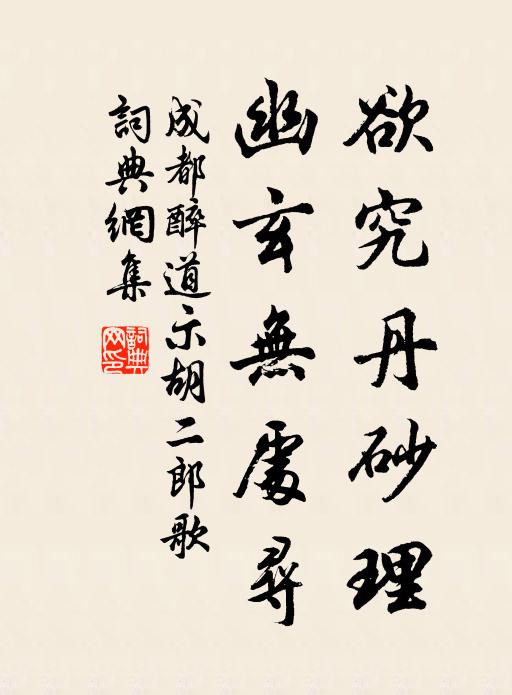 欲究丹砂理
幽玄無處尋
成都醉道示胡二郎歌
詞典網集
詞典網印